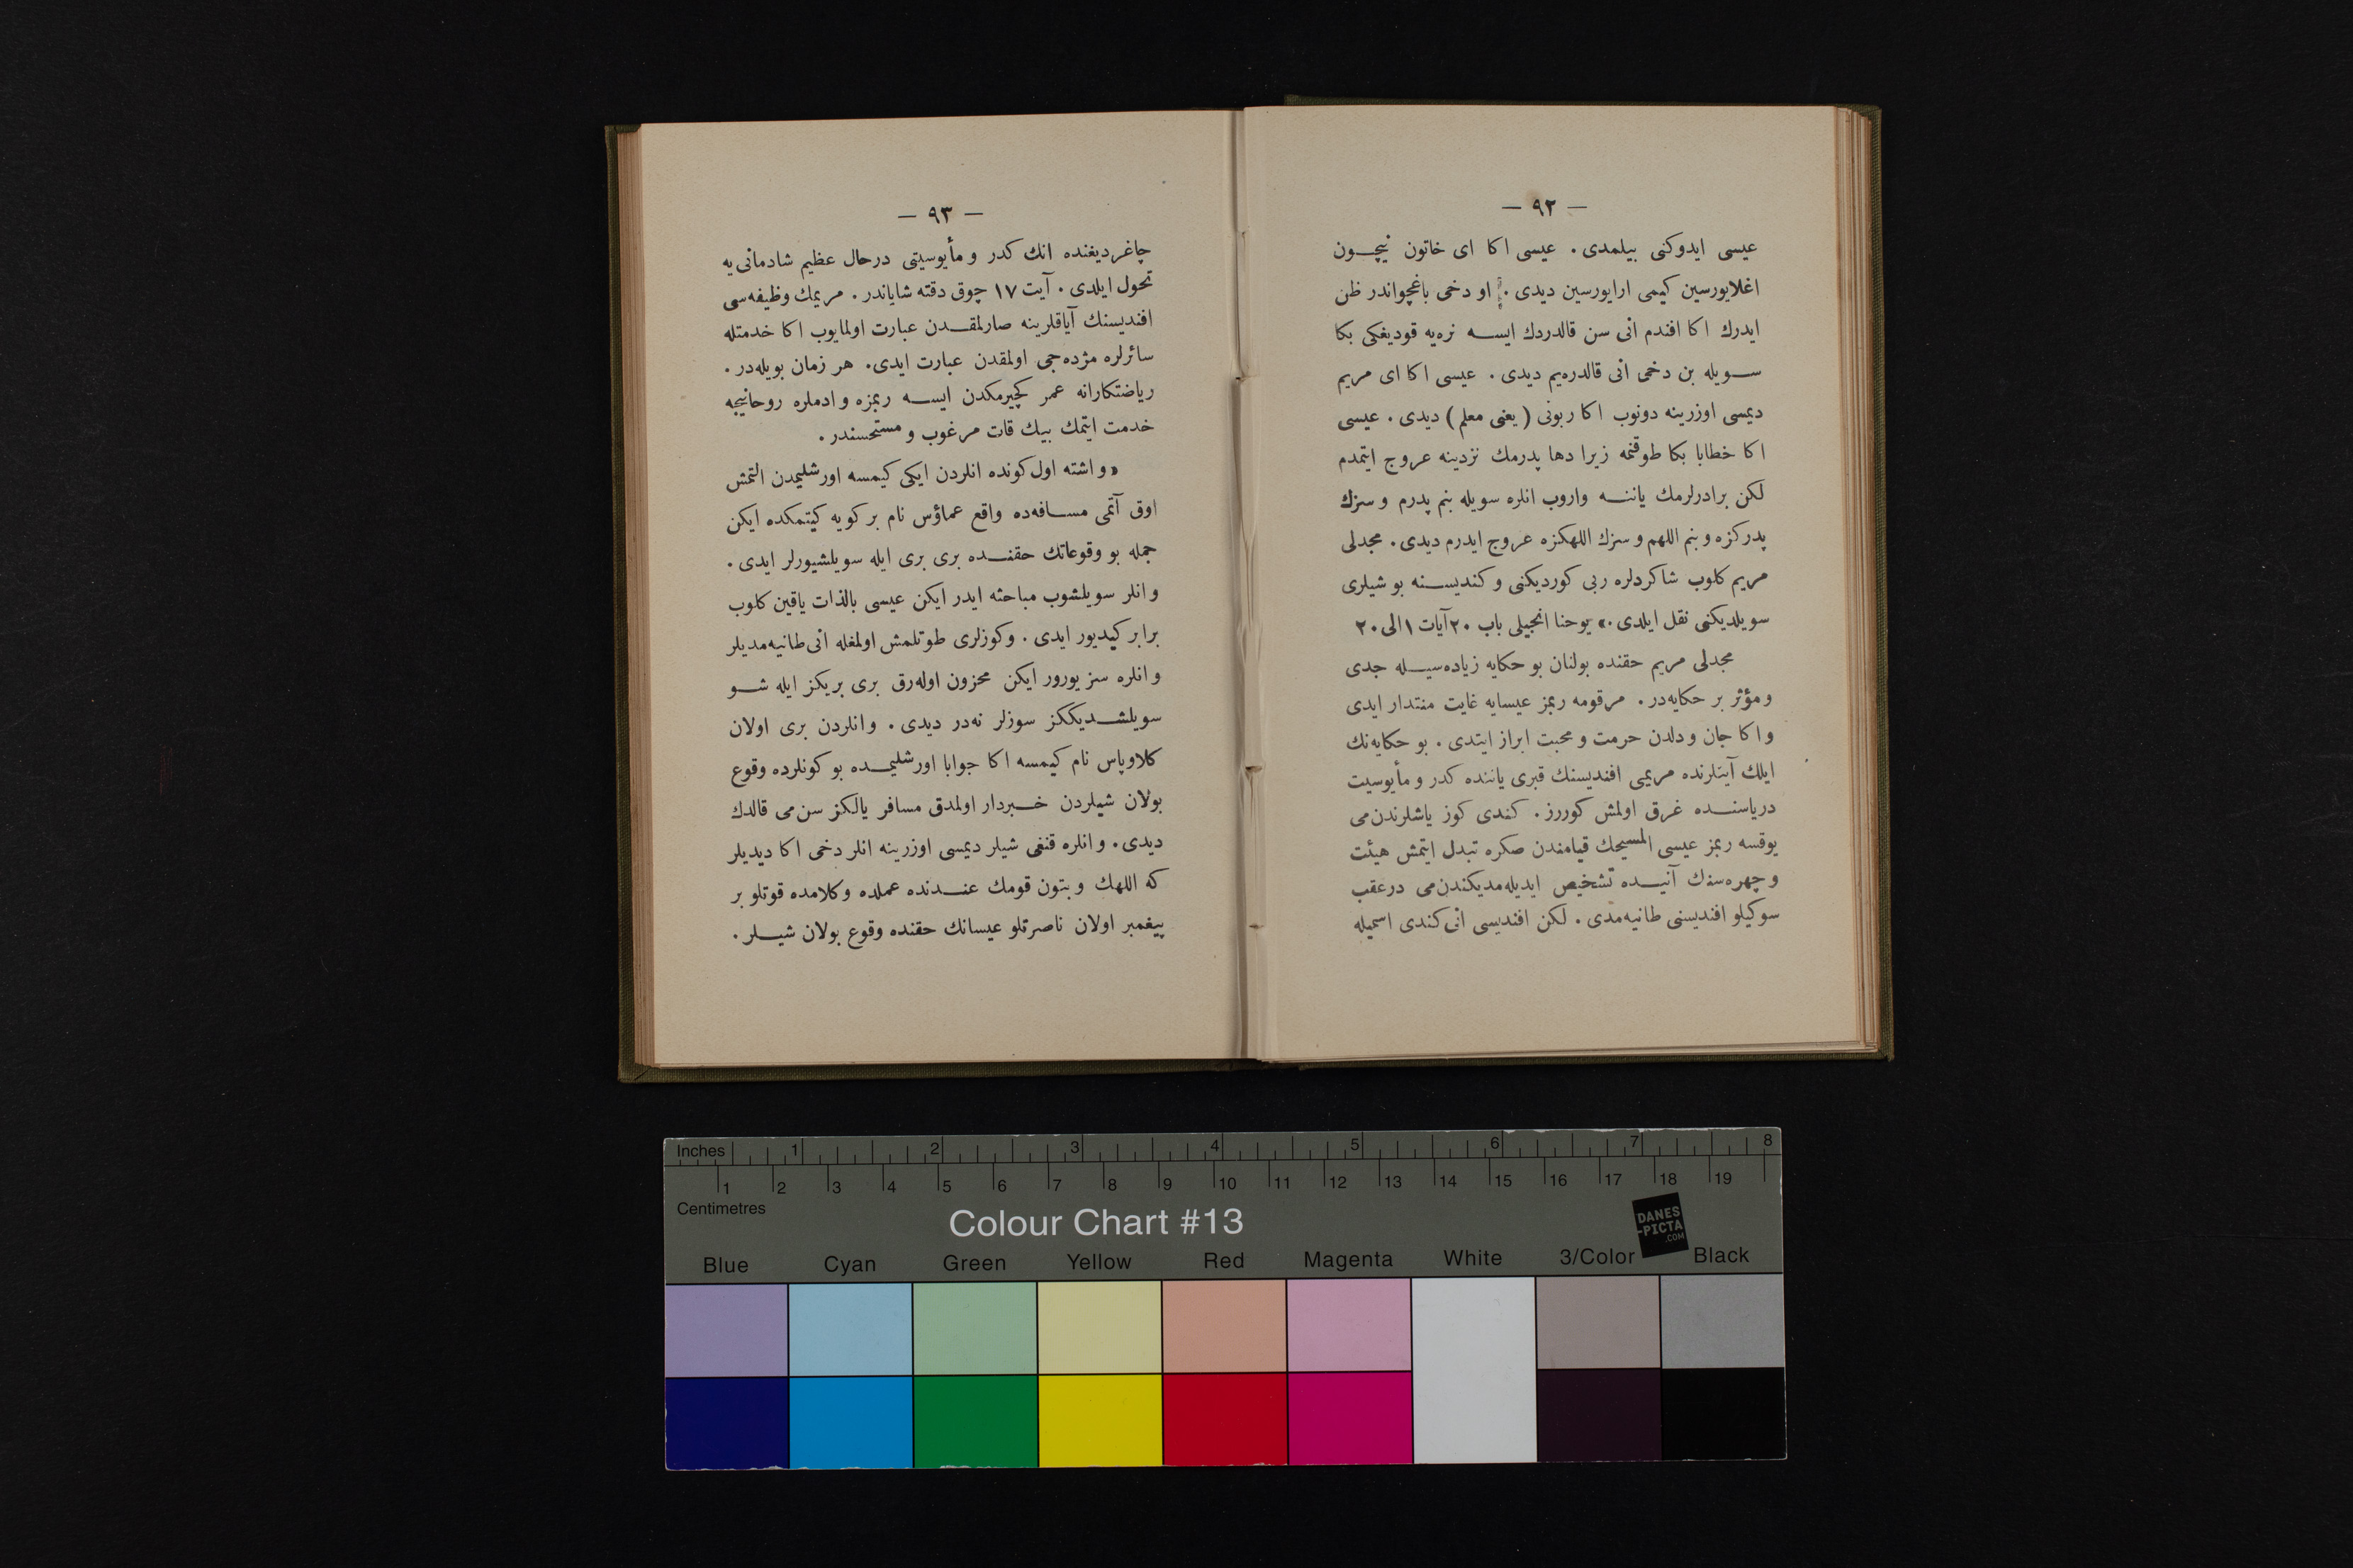 — ٩٢ —
عيسى ايدوكنى بيلمدى. عيسى اكا اى خاتون نيچـــون
اغلايورسين كيمى ارايورسين ديدى. او دخى باغچواندر ظن
ايدرك اكا افندم انى سن قالدردك ايســه نره‌يه قوديغكى بكا
ســويله بن دخى انى قالدره‌يم ديدى. عيسى اكا اى مريم
ديمسى اوزرينه دونوب اكا ربونى (يعنى معلم) ديدى. عيسى
اكا خطابا بكا طوقنمه زيرا دها پدرمك نزدينه عروج ايتمدم
لكن برادرلرمك ياننــه واروب انلره سويله بنم پدرم و سزك
پدركزه و بنم اللهم و سزك اللهكزه عروج ايدرم ديدى. مجدلى
مريم كلوب شاكردلره ربى كورديكنى و كنديســنه بو شيلرى
سويلديكنى نقل ايلدى.» يوحنا انجيلى باب ٢٠ آيات ١ الى ٢٠
مجدلى مريم حقنده بولنان بو حكايه زياده‌سيــله جدى
و مؤثر بر حكايه‌در. مرقومه ربمز عيسايه غايت منتدار ايدى
و اكا جان و دلدن حرمت و محبت ابراز ايتدى. بو حكايه‌نك
ايلك آيتلرنده مريمى افنديسنك قبرى ياننده كدر و مأيوسيت
درياسنــده غرق اولمش كوررز. كندى كوز ياشلرندن‌مى
يوقسه ربمز عيسى المسيحك قيامندن صكره تبدل ايتمش هيئت
و چهره‌سنك آنيــده تشخيص ايديله‌مديكندن‌مى درعقب
سوكيلو افنديسنى طانيه‌مدى. لكن افنديسى انى كندى اسميله
— ٩٣ —
چاغرديغنده انك كدر و مأيوسيتى درحال عظيم شادمانى‌يه
تحول ايلدى. آيت ١٧ چوق دقته شاياندر. مريمك وظيفه‌سى
افنديسنك آياقلرينه صارلمقــدن عبارت اولمايوب اكا خدمتله
سائرلره مژده‌جى اولمقدن عبارت ايدى. هر زمان بويله‌در.
رياضتكارانه عمر كچيرمكدن ايســه ربمزه و ادملره روحانيجه
خدمت ايتمك بيك قات مرغوب و مستحسندر.
«و اشته اول كونده انلردن ايكى كيمسه اورشليمدن التمش
اوق آتمى مســافه‌ده واقع عماؤس نام بر كويه كيتمكده ايكن
جمله بو وقوعاتك حقنــده برى برى ايله سويلشيورلر ايدى.
و انلر سويلشوب مباحثه ايدر ايكن عيسى بالذات ياقين كلوب
برابر كيديور ايدى. و كوزلرى طوتلمش اولمغله انى طانيه‌مديلر
و انلره سز يورور ايكن محزون اوله‌رق برى بريكز ايله شــو
سويلشــديككز سوزلر نه‌در ديدى. و انلردن برى اولان
كلاوپاس نام كيمسه اكا جوابا اورشليمــده بو كونلرده وقوع
بولان شيلردن خــبردار اولمدق مسافر يالكز سن‌مى قالدك
ديدى. و انلره قنغى شيلر ديمسى اوزرينه انلر دخى اكا ديديلر
كه اللهك و بتون قومك عنــدنده عملده و كلامده قوتلو بر
پيغمبر اولان ناصرتلو عيسانك حقنده وقوع بولان شيــلر.
Inches 1 2 3 4 5 6 7 8
1 2 3 4 5 6 7 8 9 10 11 12 13 14 15 16 17 18 19
Centimetres
Colour Chart #13
DANES
-PICTA
.COM
Blue Cyan Green Yellow Red Magenta White 3/Color Black